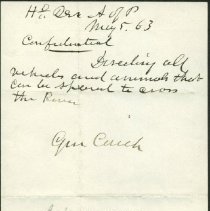 Hd Qrs A of P
May 5, 63
Confidential
Directing all
vehicles and animals that
can be spared to cross
the River
Gen Couch